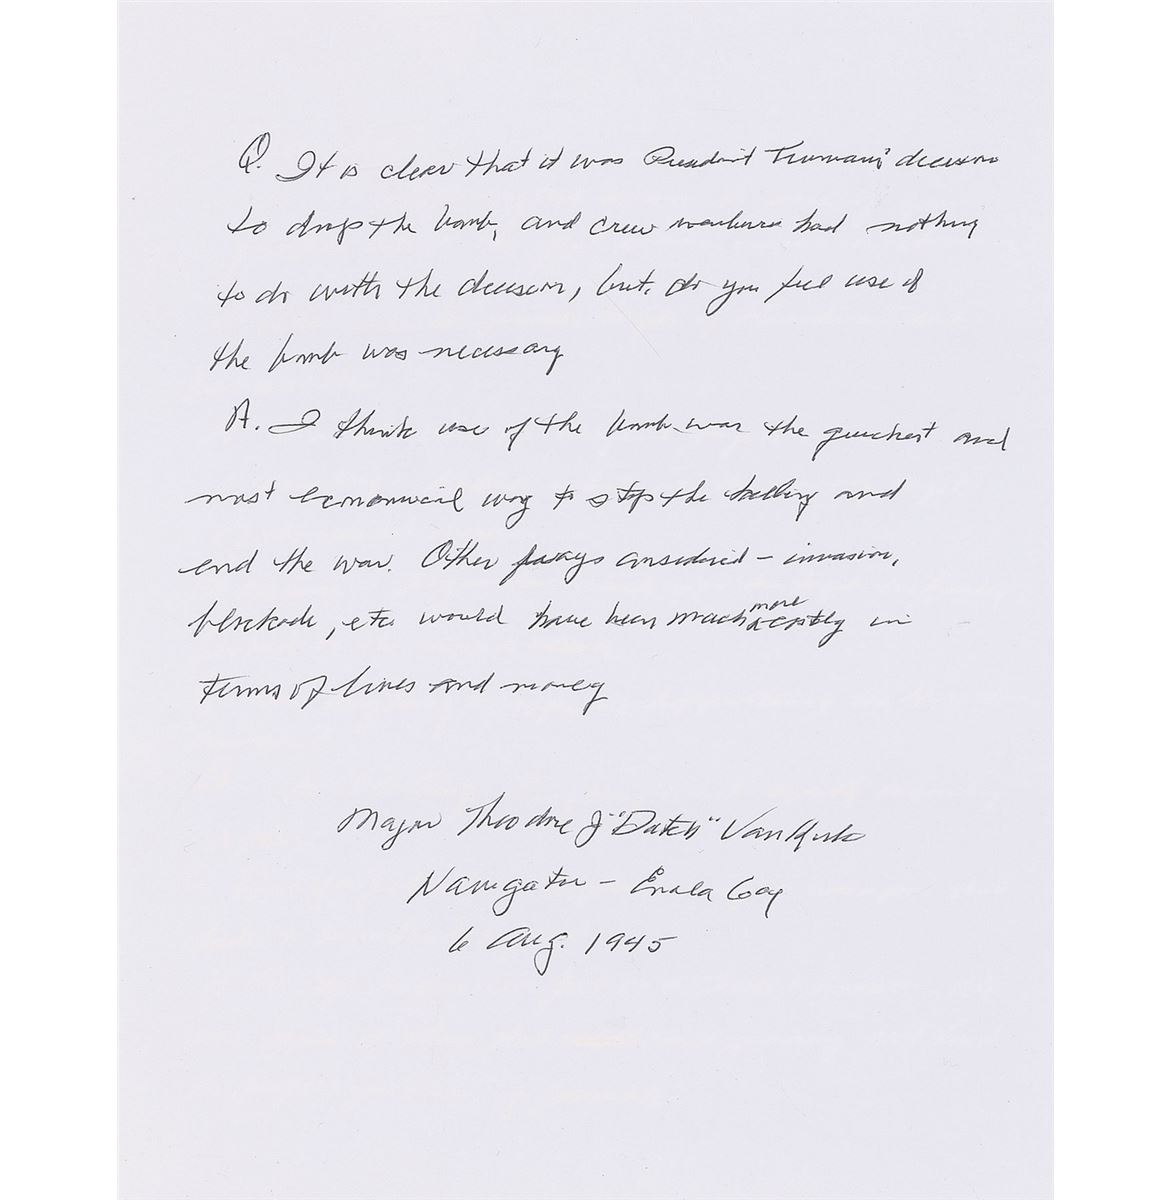 Q. It is clear that it was President Truman's decision
to drop the bomb, and crew members had nothing
to do with the decision, but, do you feel use of
the bomb was necessary
A. I think use of the bomb was the quickest and
most economical way to stop the killing and
end the war. Other ways considered – invasion,
blockade, etc would have been much more costly in
terms of lives and money
Major Theodore J "Dutch" Van Kirk
Navigator – Enola Gay
6 Aug. 1945